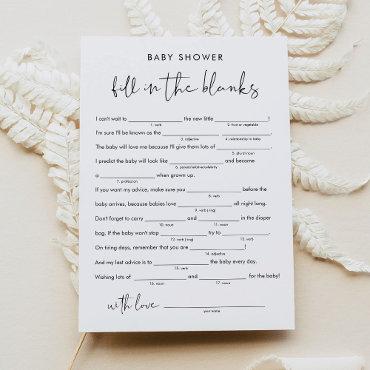 BABY SHOWER
fill in the blanks
I can't wait to __________ the new little __________!
1. verb 2. fruit or vegetable
I'm sure I'll be known as the __________ __________.
3. adjective 4. relationship to baby
The baby will love me because I'll give them lots of __________.
5. plural noun
I predict the baby will look like __________ and become
6. person/relative/celebrity
a __________ when grown up.
7. profession
If you want my advice, make sure you __________ before the
8. verb
baby arrives, because babies love __________ all night long.
9. verb (-ing)
Don't forget to carry __________ and __________ in the diaper
10. noun 11. noun
bag. If the baby won't stop __________ try to __________.
12. verb (-ing) 13. verb
On tiring days, remember that you are __________!
14. adjective
And my last advice is to __________ the baby every day.
15. verb
Wishing lots of __________ and __________ for the baby!
16. noun 17. noun
with love __________
your name